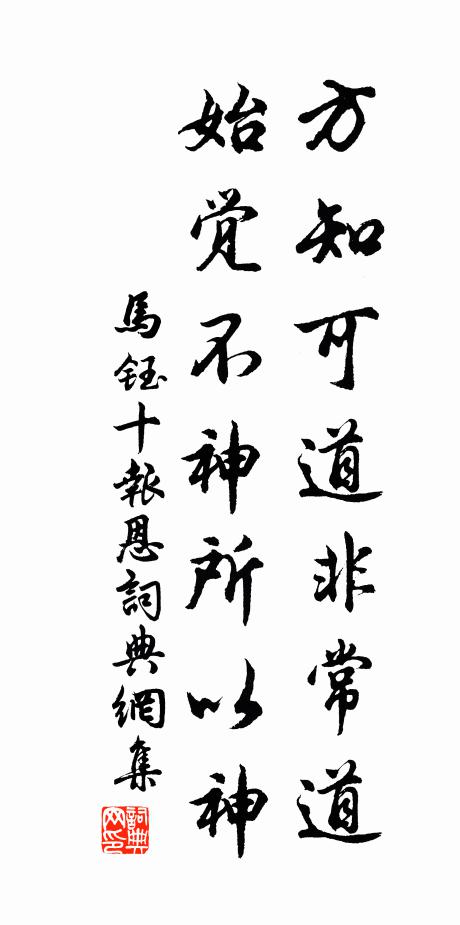 方知可道非常道
始觉不神所以神
馬鈺十報恩詞典網集
詞典网印